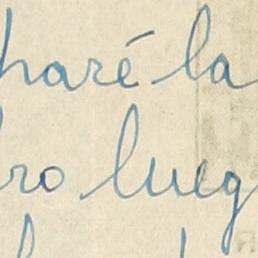 haré la
ro lueg